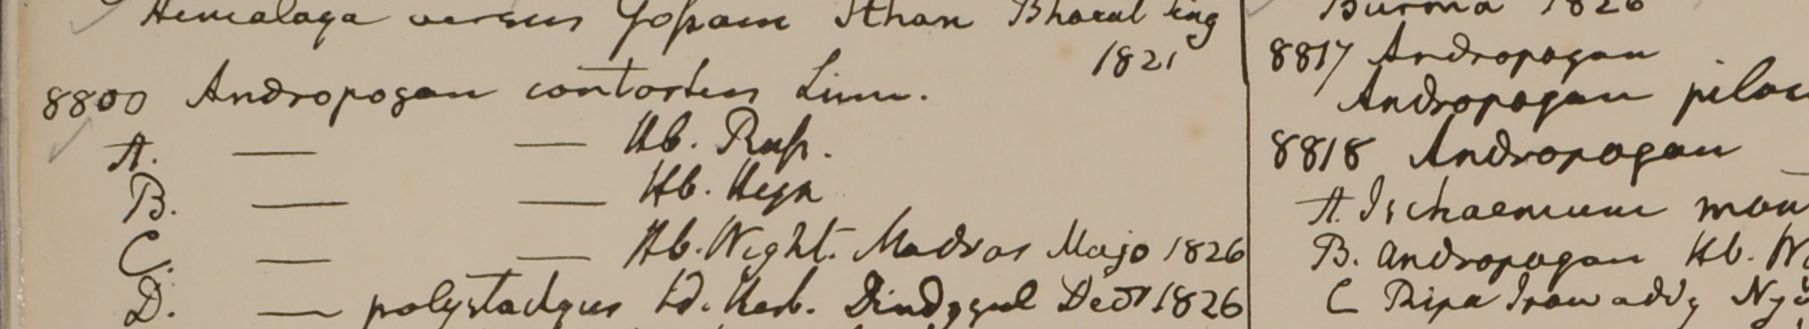 Himalaya versus Gossain Sthan Bharat Sing
1821
8800 Andropogon contortus Linn.
A. — — Hb. Russ.
B. — — Hb. Heyn
C. — — Hb. Wight. Madras Majo 1826
D. — polystachyus Id. Herb. Dindygul Dec 1826
Burma 1826
8817 Andropogon
Andropogon
8818 Andropogon
A. Ischaemum
B. Andropogon Hb.
C Ripa Irawaddy